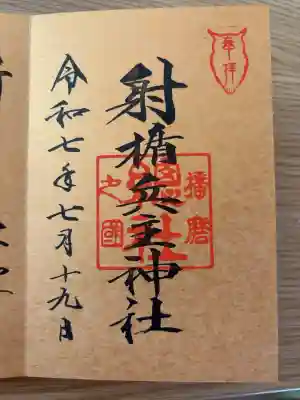 奉拝
射楯兵主神社
播磨
之國
總社
令和七年七月十九日